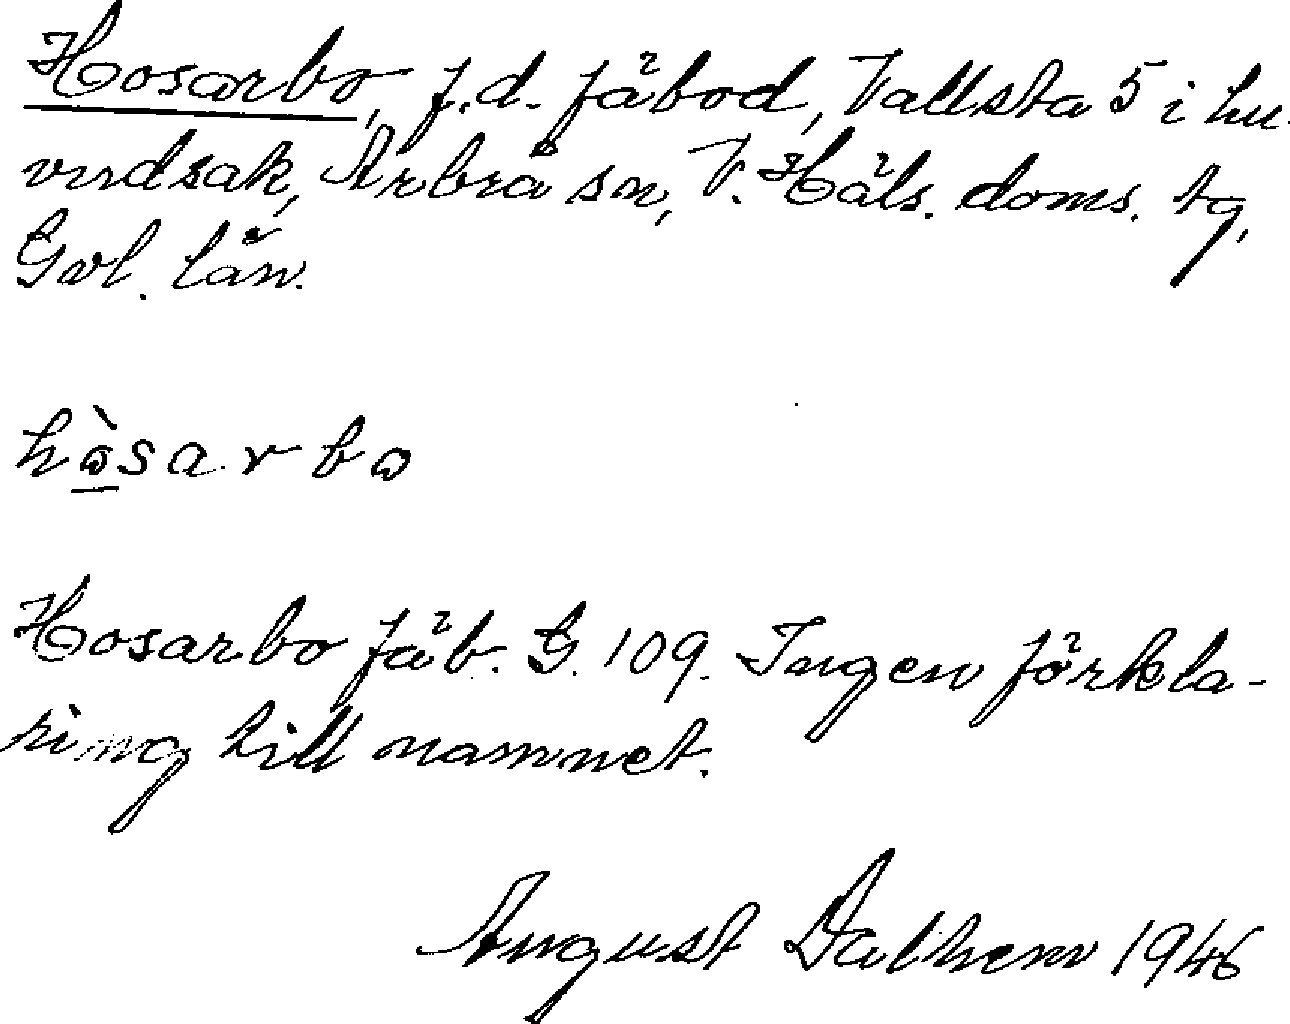 Hosarbo, f.d. fäbod, Vallsta 5 i hu-
vudsak, Arbrå sn, V. Häls. doms. tg,
Gvl. län.
hòsarbo
Hosarbo fäb. G. 109. Ingen förkla-
ring till namnet.
August Dalhem 1946